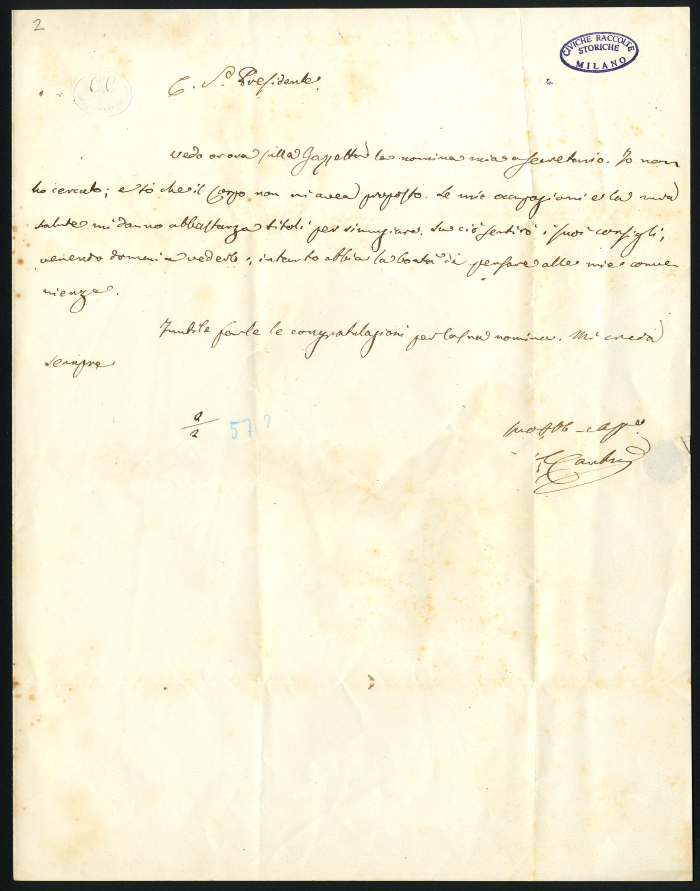 2
CIVICHE RACCOLTE
STORICHE
MILANO
C.C
C. Sr. Presidente
Vedo or ora sulla Gazzetta la nomina mia a Secretario. Io non
ho cercato; e so che il Corpo non mi avea proposto. Le mie occupazioni e la mia
salute mi danno abbastanza titoli per rinunziare. Su ciò sentirò i suoi consigli,
venendo domani a vederlo; intanto abbia la bontà di pensare alle mie conve
nienze.
Inutile farle le congratulazioni per la sua nomina. Mi creda
sempre
a/a
57?
suo obb. - aff.
C Cantù